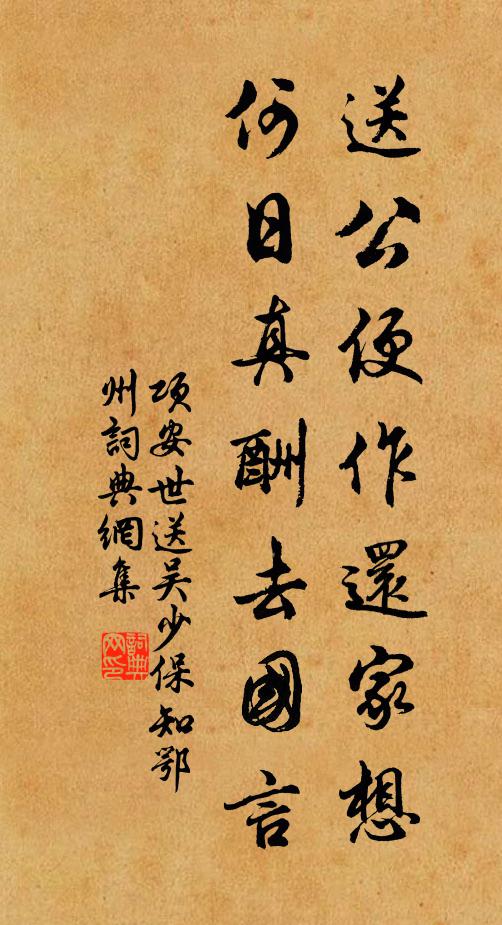 送公便作還家想
何日真酬去國言
項安世送吴少保知鄂
州詞典網集
詞典網印